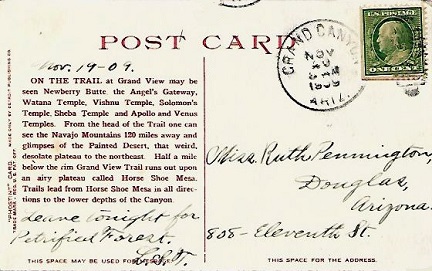 POST CARD
Nov. 19-09.
ON THE TRAIL at Grand View may be
seen Newberry Butte, the Angel's Gateway,
Watana Temple, Vishnu Temple, Solomon's
Temple, Sheba Temple and Apollo and Venus
Temples. From the head of the Trail one can
see the Navajo Mountains 120 miles away and
glimpses of the Painted Desert, that weird,
desolate plateau to the northeast. Half a mile
below the rim Grand View Trail runs out upon
an airy plateau called Horse Shoe Mesa.
Trails lead from Horse Shoe Mesa in all direc-
tions to the lower depths of the Canyon
Leave tonight for
Petrified Forest.
THIS SPACE MAY BE USED FOR
"PHOSTINT" CARD
GRAND CANYON
NOV
1909
ARIZ.
U.S. POSTAGE
ONE CENT
Miss. Ruth Pennington,
Douglas,
Arizona.
808- Eleventh St.
THIS SPACE FOR THE ADDRESS.